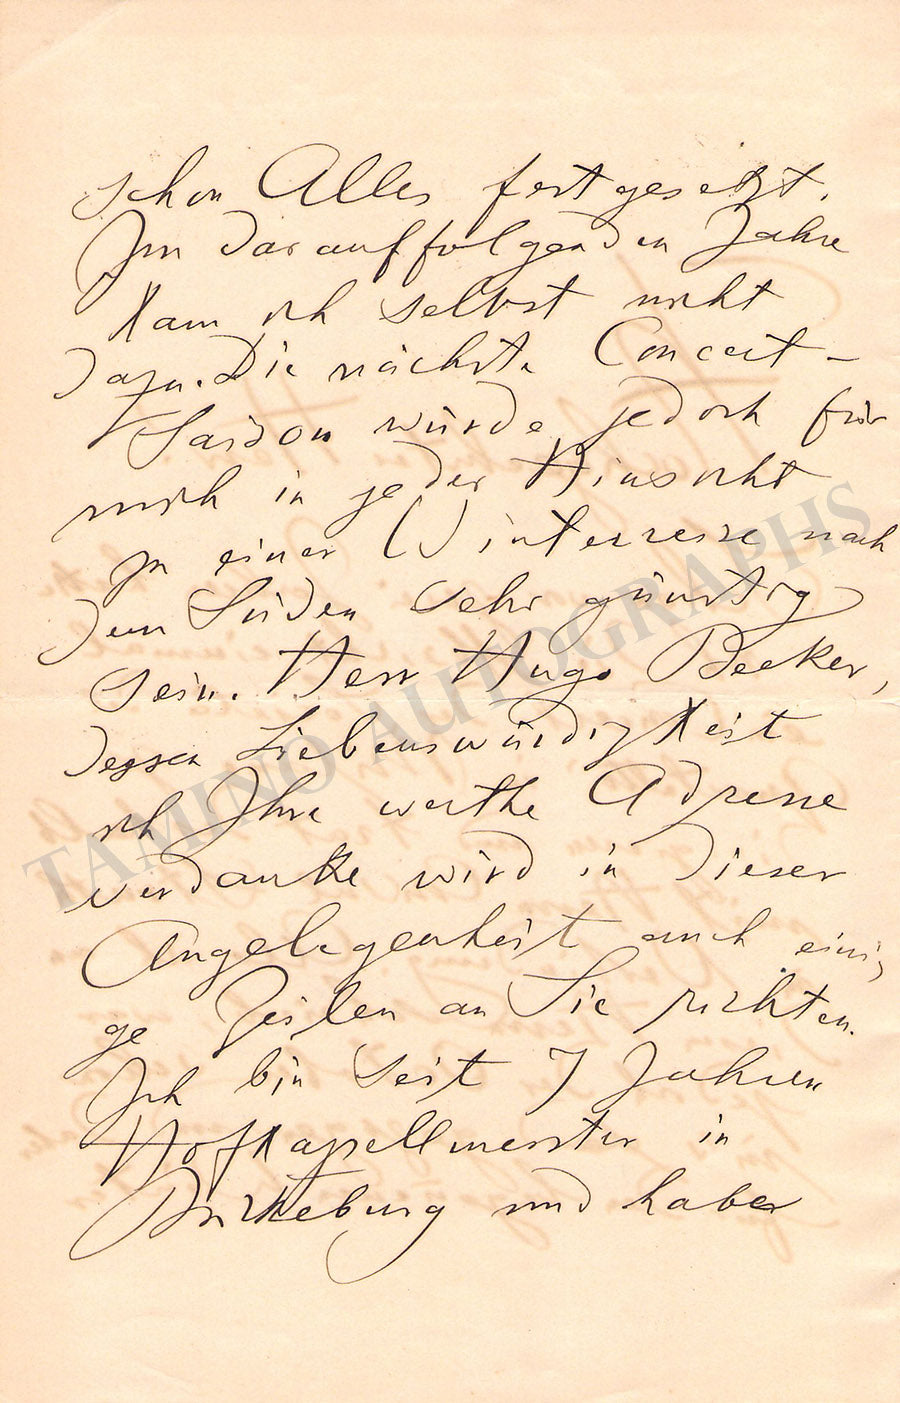 schon Alles festgesetzt.
Im darauffolgenden Jahre
kam ich selbst nicht
dazu. Die nächste Concert-
Saison würde jedoch für
mich in jeder Hinsicht
zu einer Winterreise nach
dem Süden sehr günstig
sein. Herr Hugo Becker,
dessen Liebenswürdigkeit
ich Ihre werthe Adresse
verdanke wird in dieser
Angelegenheit auch eini
ge Zeilen an Sie richten.
Ich bin seit 7 Jahren
Hofkapellmeister in
Bückeburg und habe
TAMINO AUTOGRAPHS